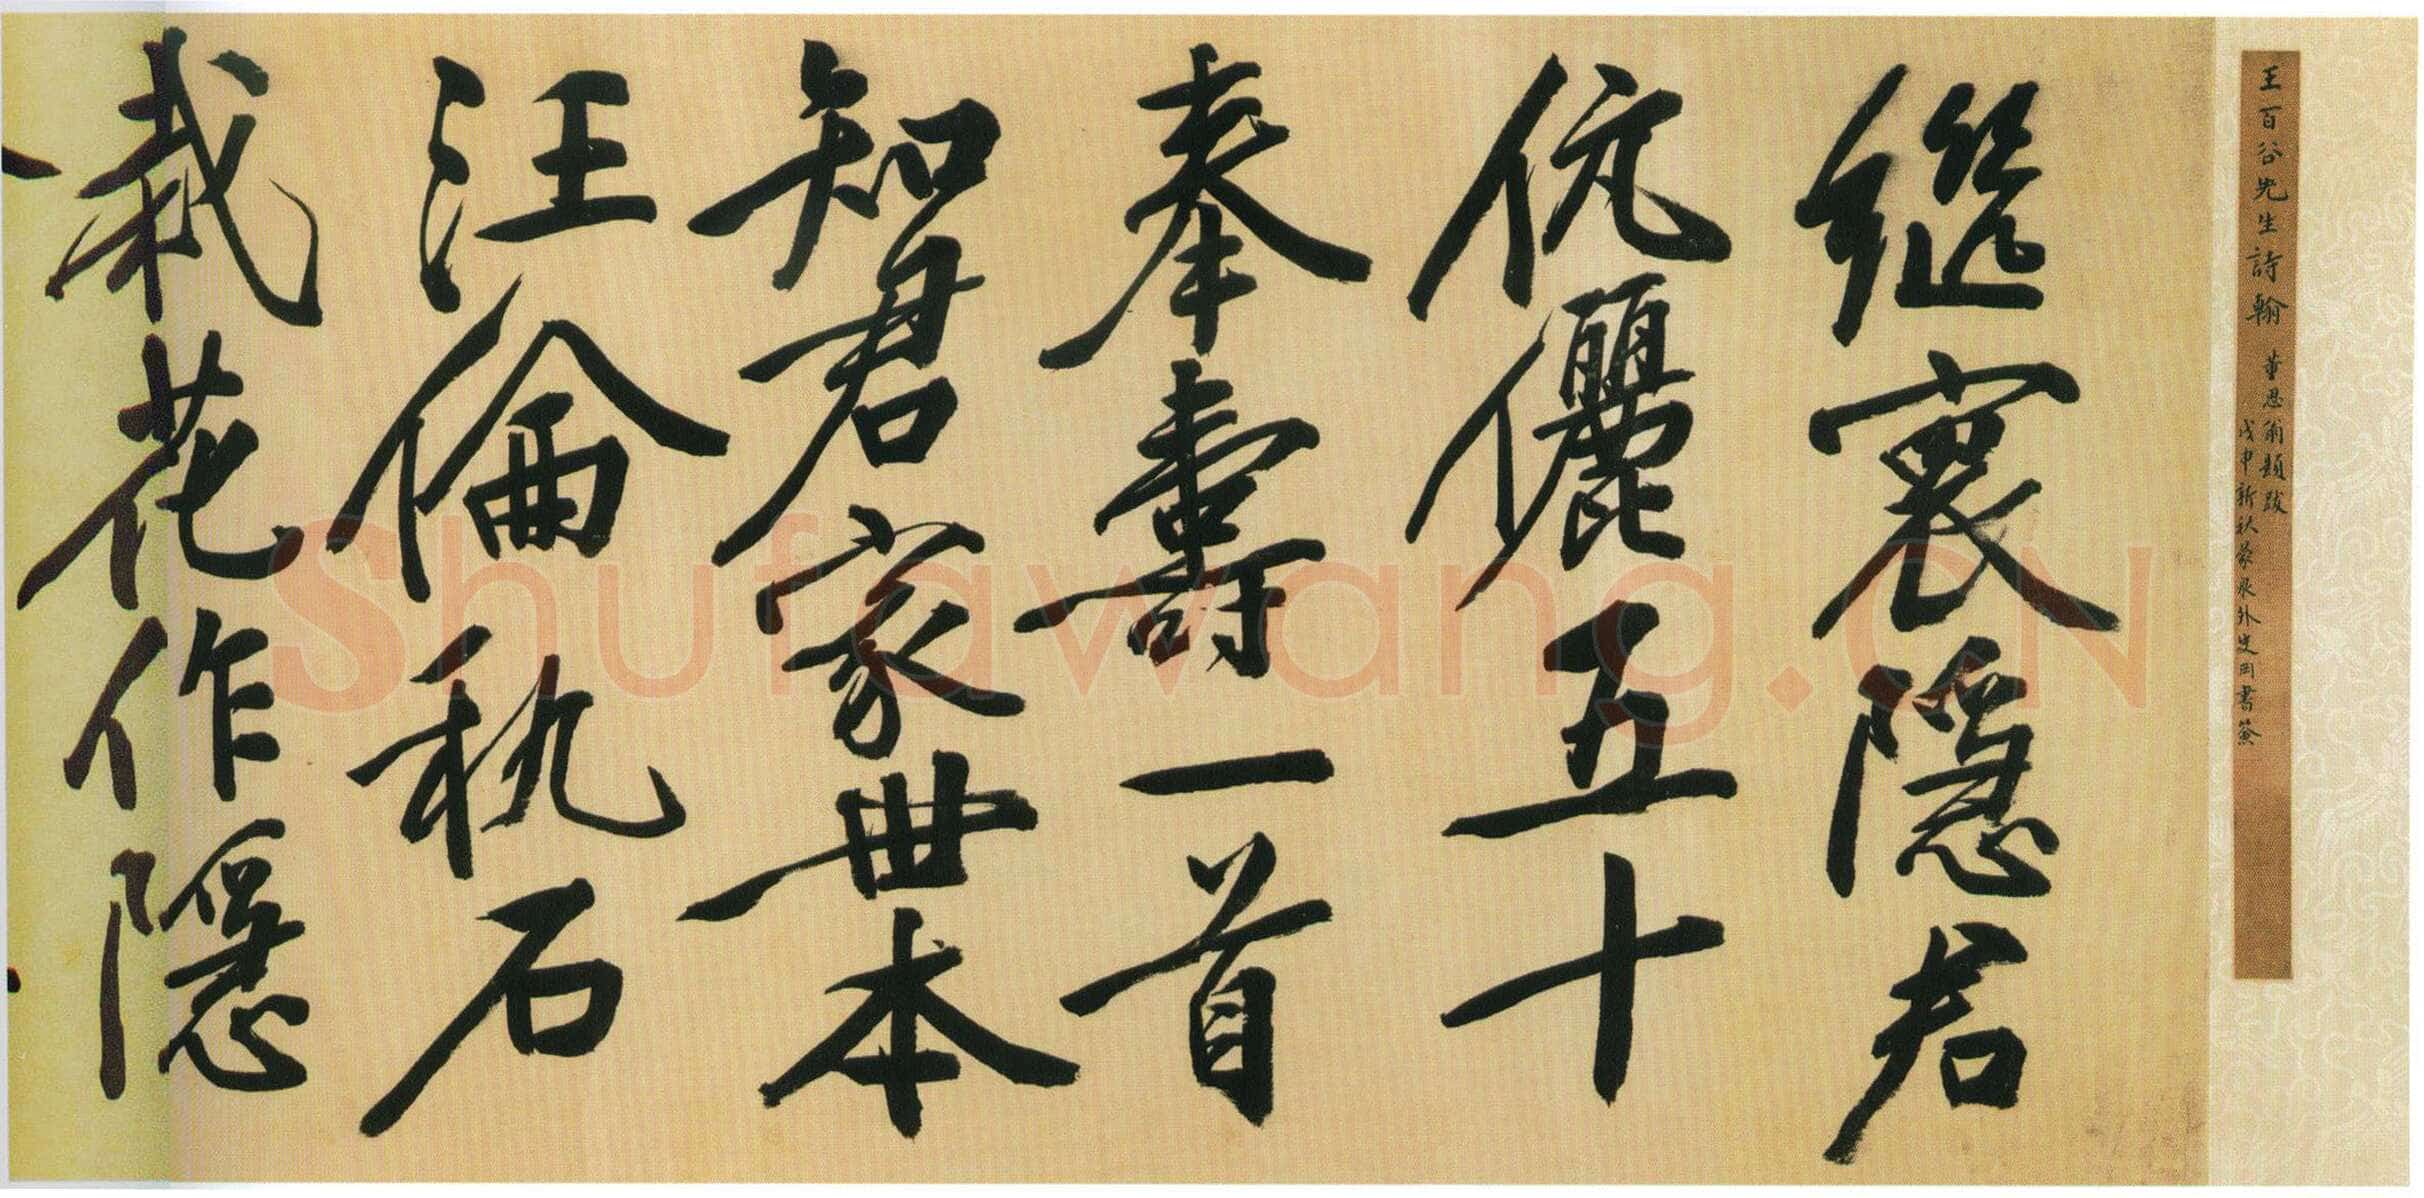 王百谷先生詩翰 董思翁題跋
戊申新秋 外史同書簽
继襄隱君
伉儷五十
奉壽一首
知君家世本
汪倫 石
栽花作隱
Shufawang.CN